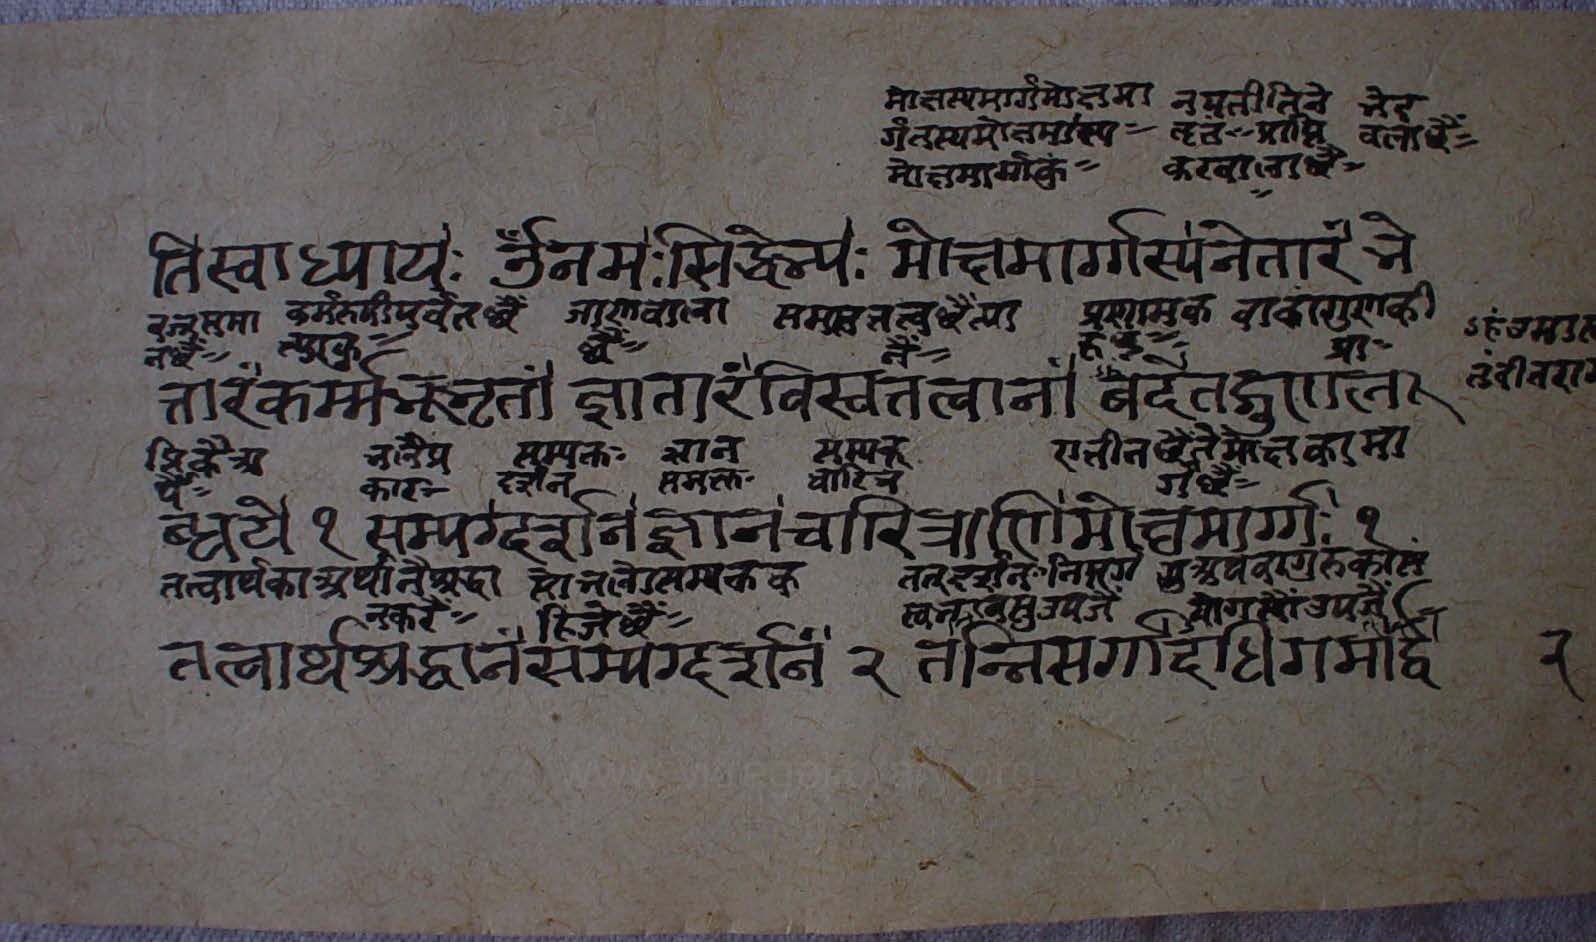 मोक्षस्यमार्गंमोक्षमा नयतीतिने नेद
र्गंतस्यमोक्षमार्गस्य= तृतं= प्राप्ति वलाछै=
मोक्षमार्गकुं= करवावालाछै=
तिस्वाध्यायः ॐनमःसिद्धेभ्यः मोक्षमार्गास्यनेतारं भे
वज्रसमा कर्मरूपीपर्वतछै जाणवावाला समस्ततत्वछैत्या प्रणामक वाकांगुणकी
नछै= त्याकु= छै= नैं= रूछु= प्रा=
त्तारंकर्म्मभूभृतां ज्ञातारंविस्वतत्वानां बंदेतद्गुणल
प्तिकैअ भलैप्र सम्यक्त= ज्ञान सम्यक् एतीनछैतेमोक्षकामा
र्थै= कार= दर्शन समक्त= चारित्र र्गछै=
ब्धये १ सम्यग्दर्शनज्ञानचारित्राणिमोक्षमार्गः १
तत्वार्थकाअर्थानैश्रद्धा सम्यक्तक तत्दर्शनःनिसर्ग
नकरै= हिजेछै= उपजै उपजै
तत्वार्थश्रद्धानंसम्यग्दर्शनं २ तन्निसर्गादधिगमाद्वा २